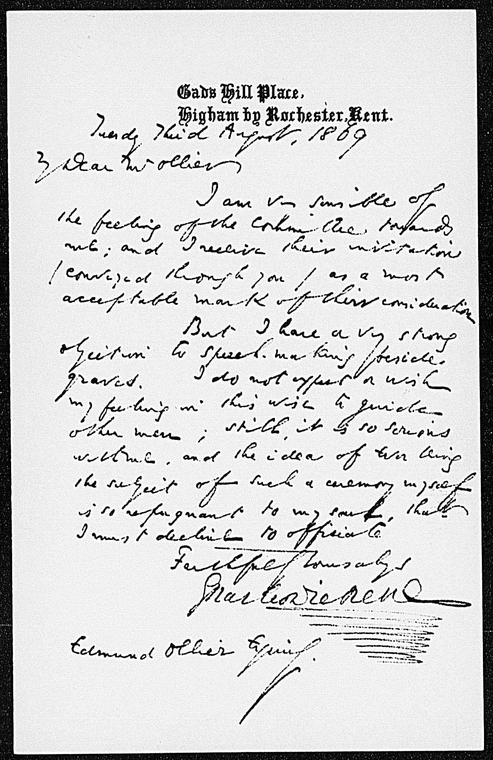 Gads Hill Place,
Higham by Rochester, Kent.
Tuesday Third August, 1869
My Dear Mr Ollier
I am very sensible of
the feeling of the Committee towards
me; and I receive their invitation
(conveyed through you) as a most
acceptable mark of their consideration
But I have a very strong
objection to speech-making beside
graves. I do not expect or wish
my feeling in this wise to guide
other men; still, it is so serious
with me, and the idea of ever being
the subject of such a ceremony myself
is so repugnant to my soul, that
I must decline to officiate
Faithfully Yours always
Charles Dickens
Edmund Ollier Esquire.